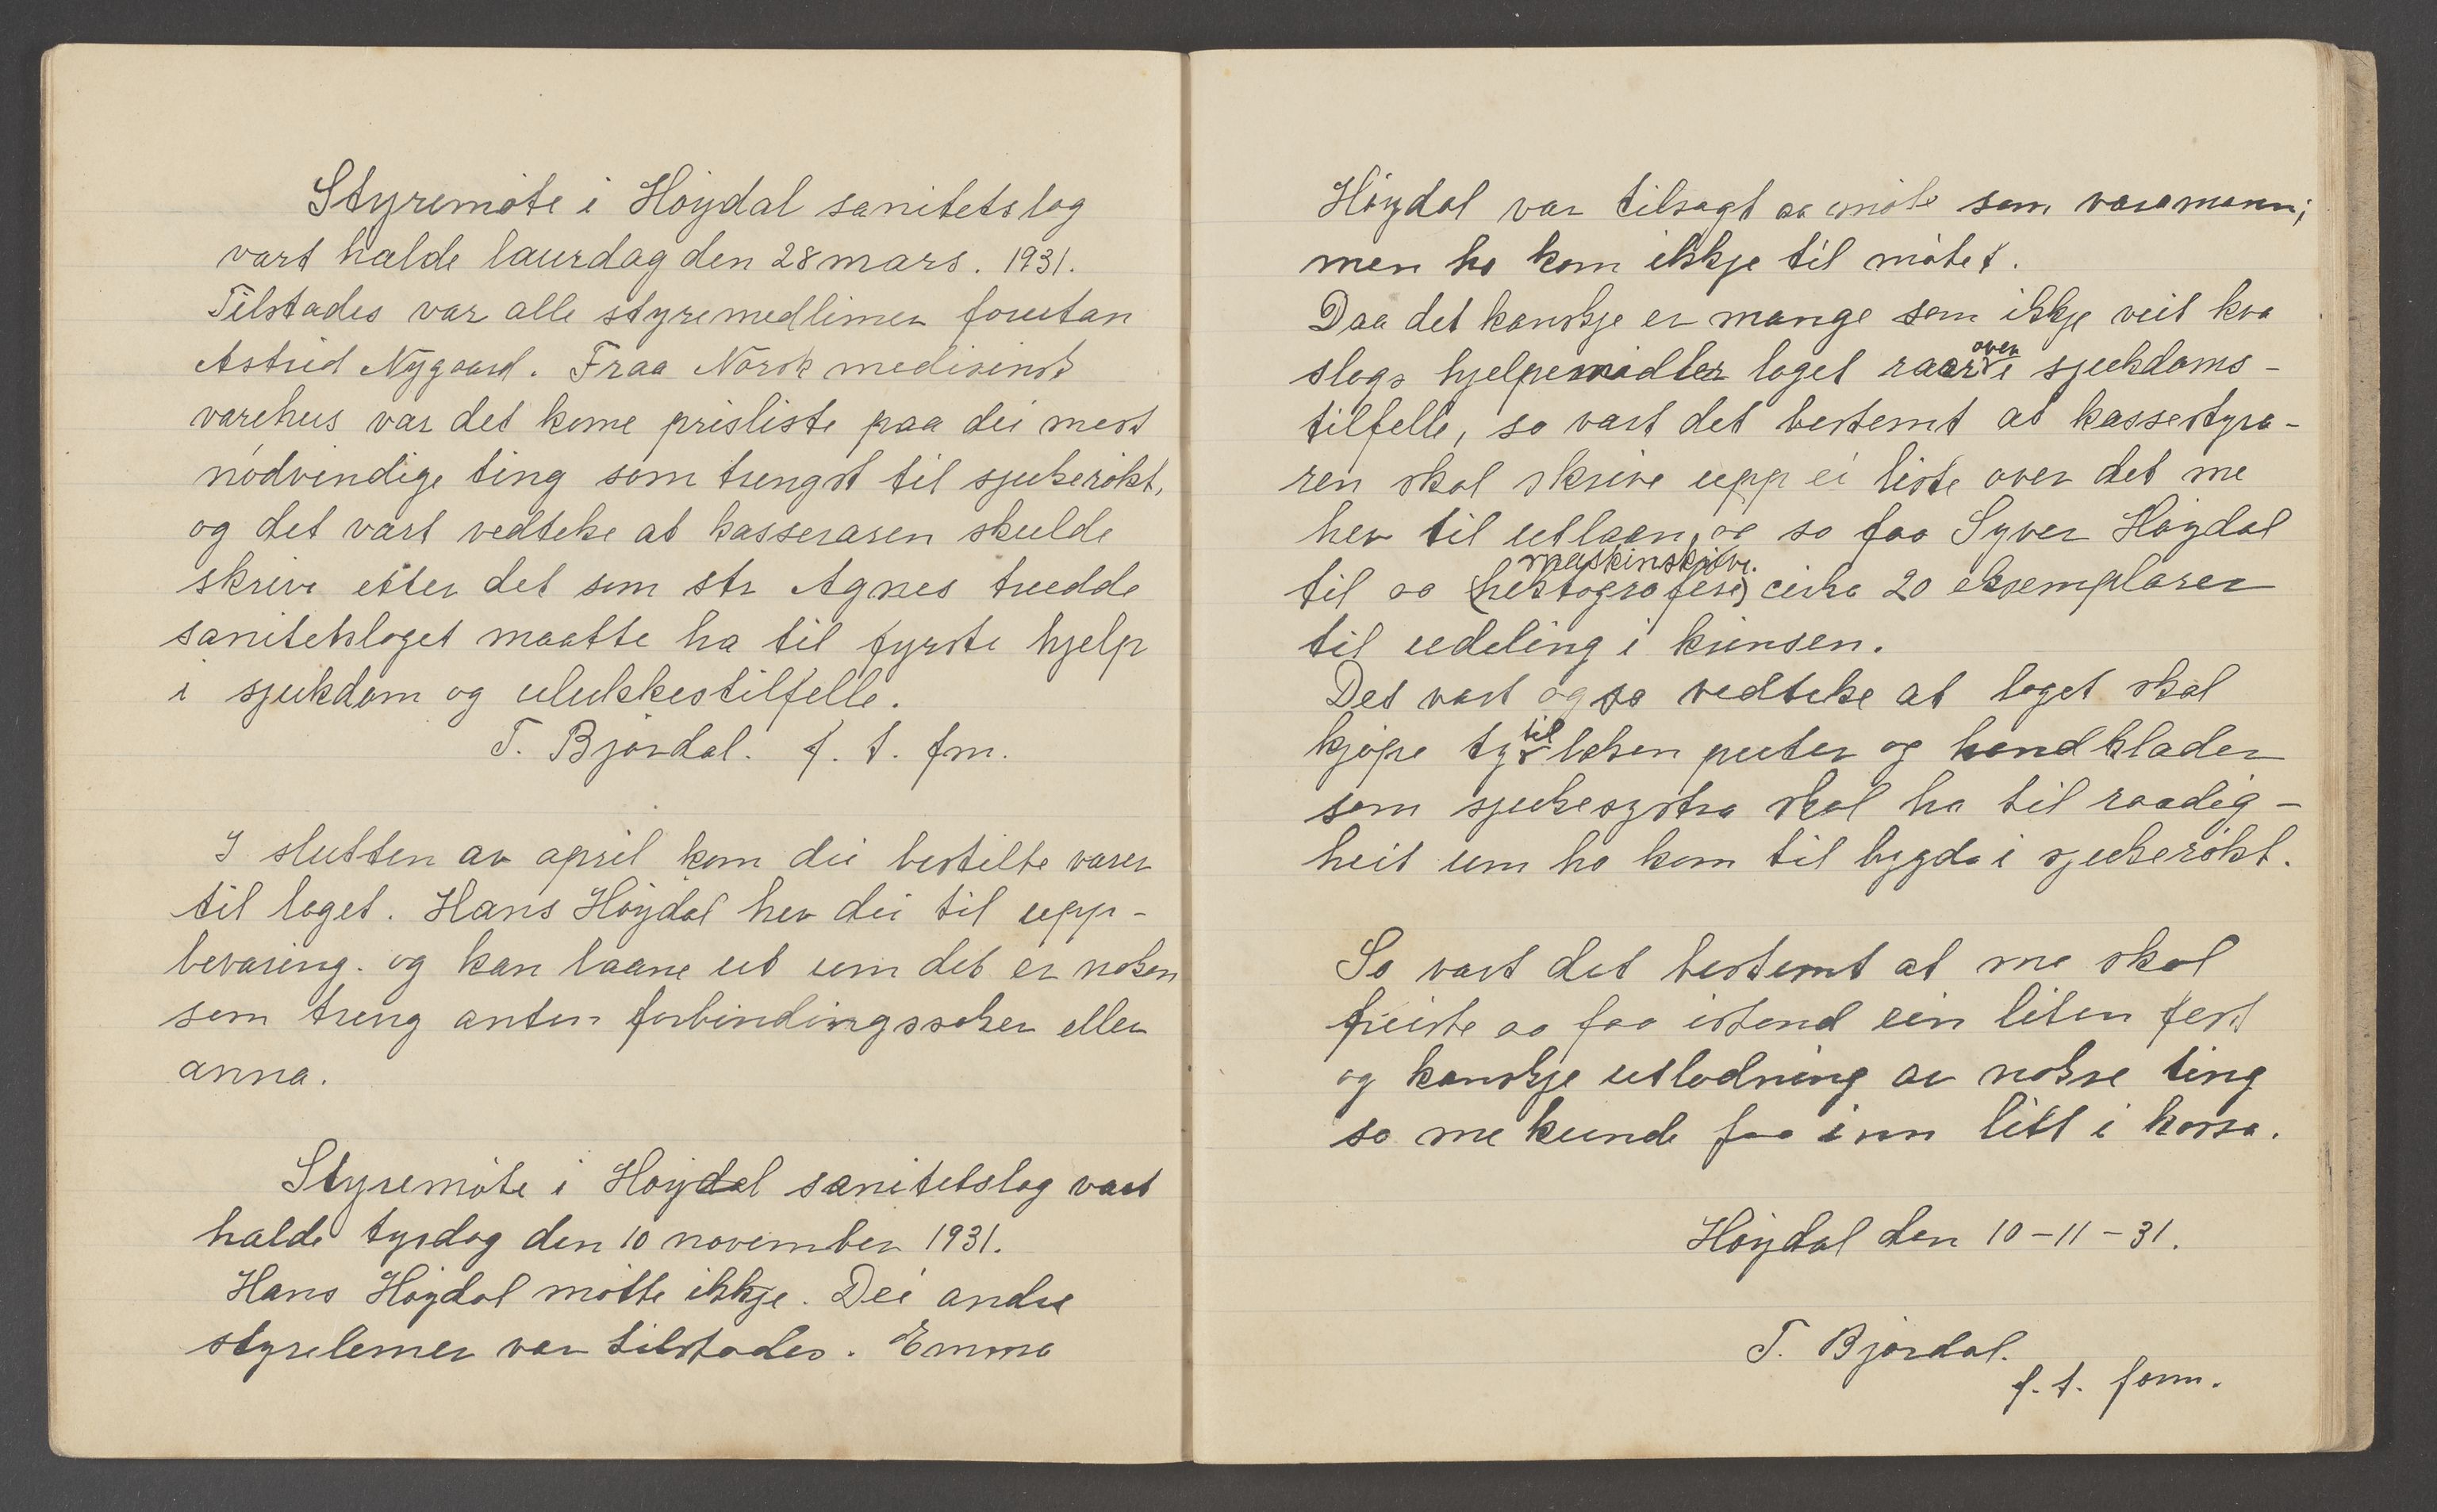 Styremöte i Höydal sanitetslag
vart halde laurdag den 28 mars. 1931.
Tilstades var alle styremedlimer forutan
Astrid Nygaard. Fraa Norsk medisinsk
varehus var det kome prisliste paa dei mest
nödvendige ting som trengst til sjukerökt,
og det vart vedteke at kasseraren skulde
skrive etter det som str Agnes trudde
sanitetslaget maatte ha til fyrste hjelp
i sjukdom og ulukkestilfelle.
T. Björdal. f. t. fm.
I slutten av april kom dei bestilte varer
til laget. Hans Höydal hev dei til upp-
bevaring. og kan laane ut um det er noken
som treng anten forbindingssaker eller
anna.
Styremöte i Höydal sanitetslag vart
halde tysdag den 10 november 1931.
Hans Höydal mötte ikkje. Dei andre
styrelemer var tilstades. Emma
Höydal var tilsagt aa möte som varamann;
men ho kom ikkje til mötet.
Daa det kanskje er mange som ikkje veit kva
over
slags hjelpemidler laget raar i sjukdoms-
tilfelle, so vart det bestemt at kassestyra-
ren skal skrive upp ei liste over det me
hev til utlaan, og so faa Syver Höydal
maskinskrive.
til aa (hektografere) cirka 20 eksemplarer
til udeling i krinsen.
Det vart ogso vedteke at laget skal
til
kjöpe ty laken puter og handklader
som sjukesystra skal ha til raadig-
heit um ho kom til bygda i sjukerökt.
So vart det bestemt at me skal
freiste aa faa istand ein liten fest
og kanskje utlodning av nokre ting
so me kunde faa inn litt i kassa.
Höydal den 10-11-31.
T. Björdal.
f. t. form.